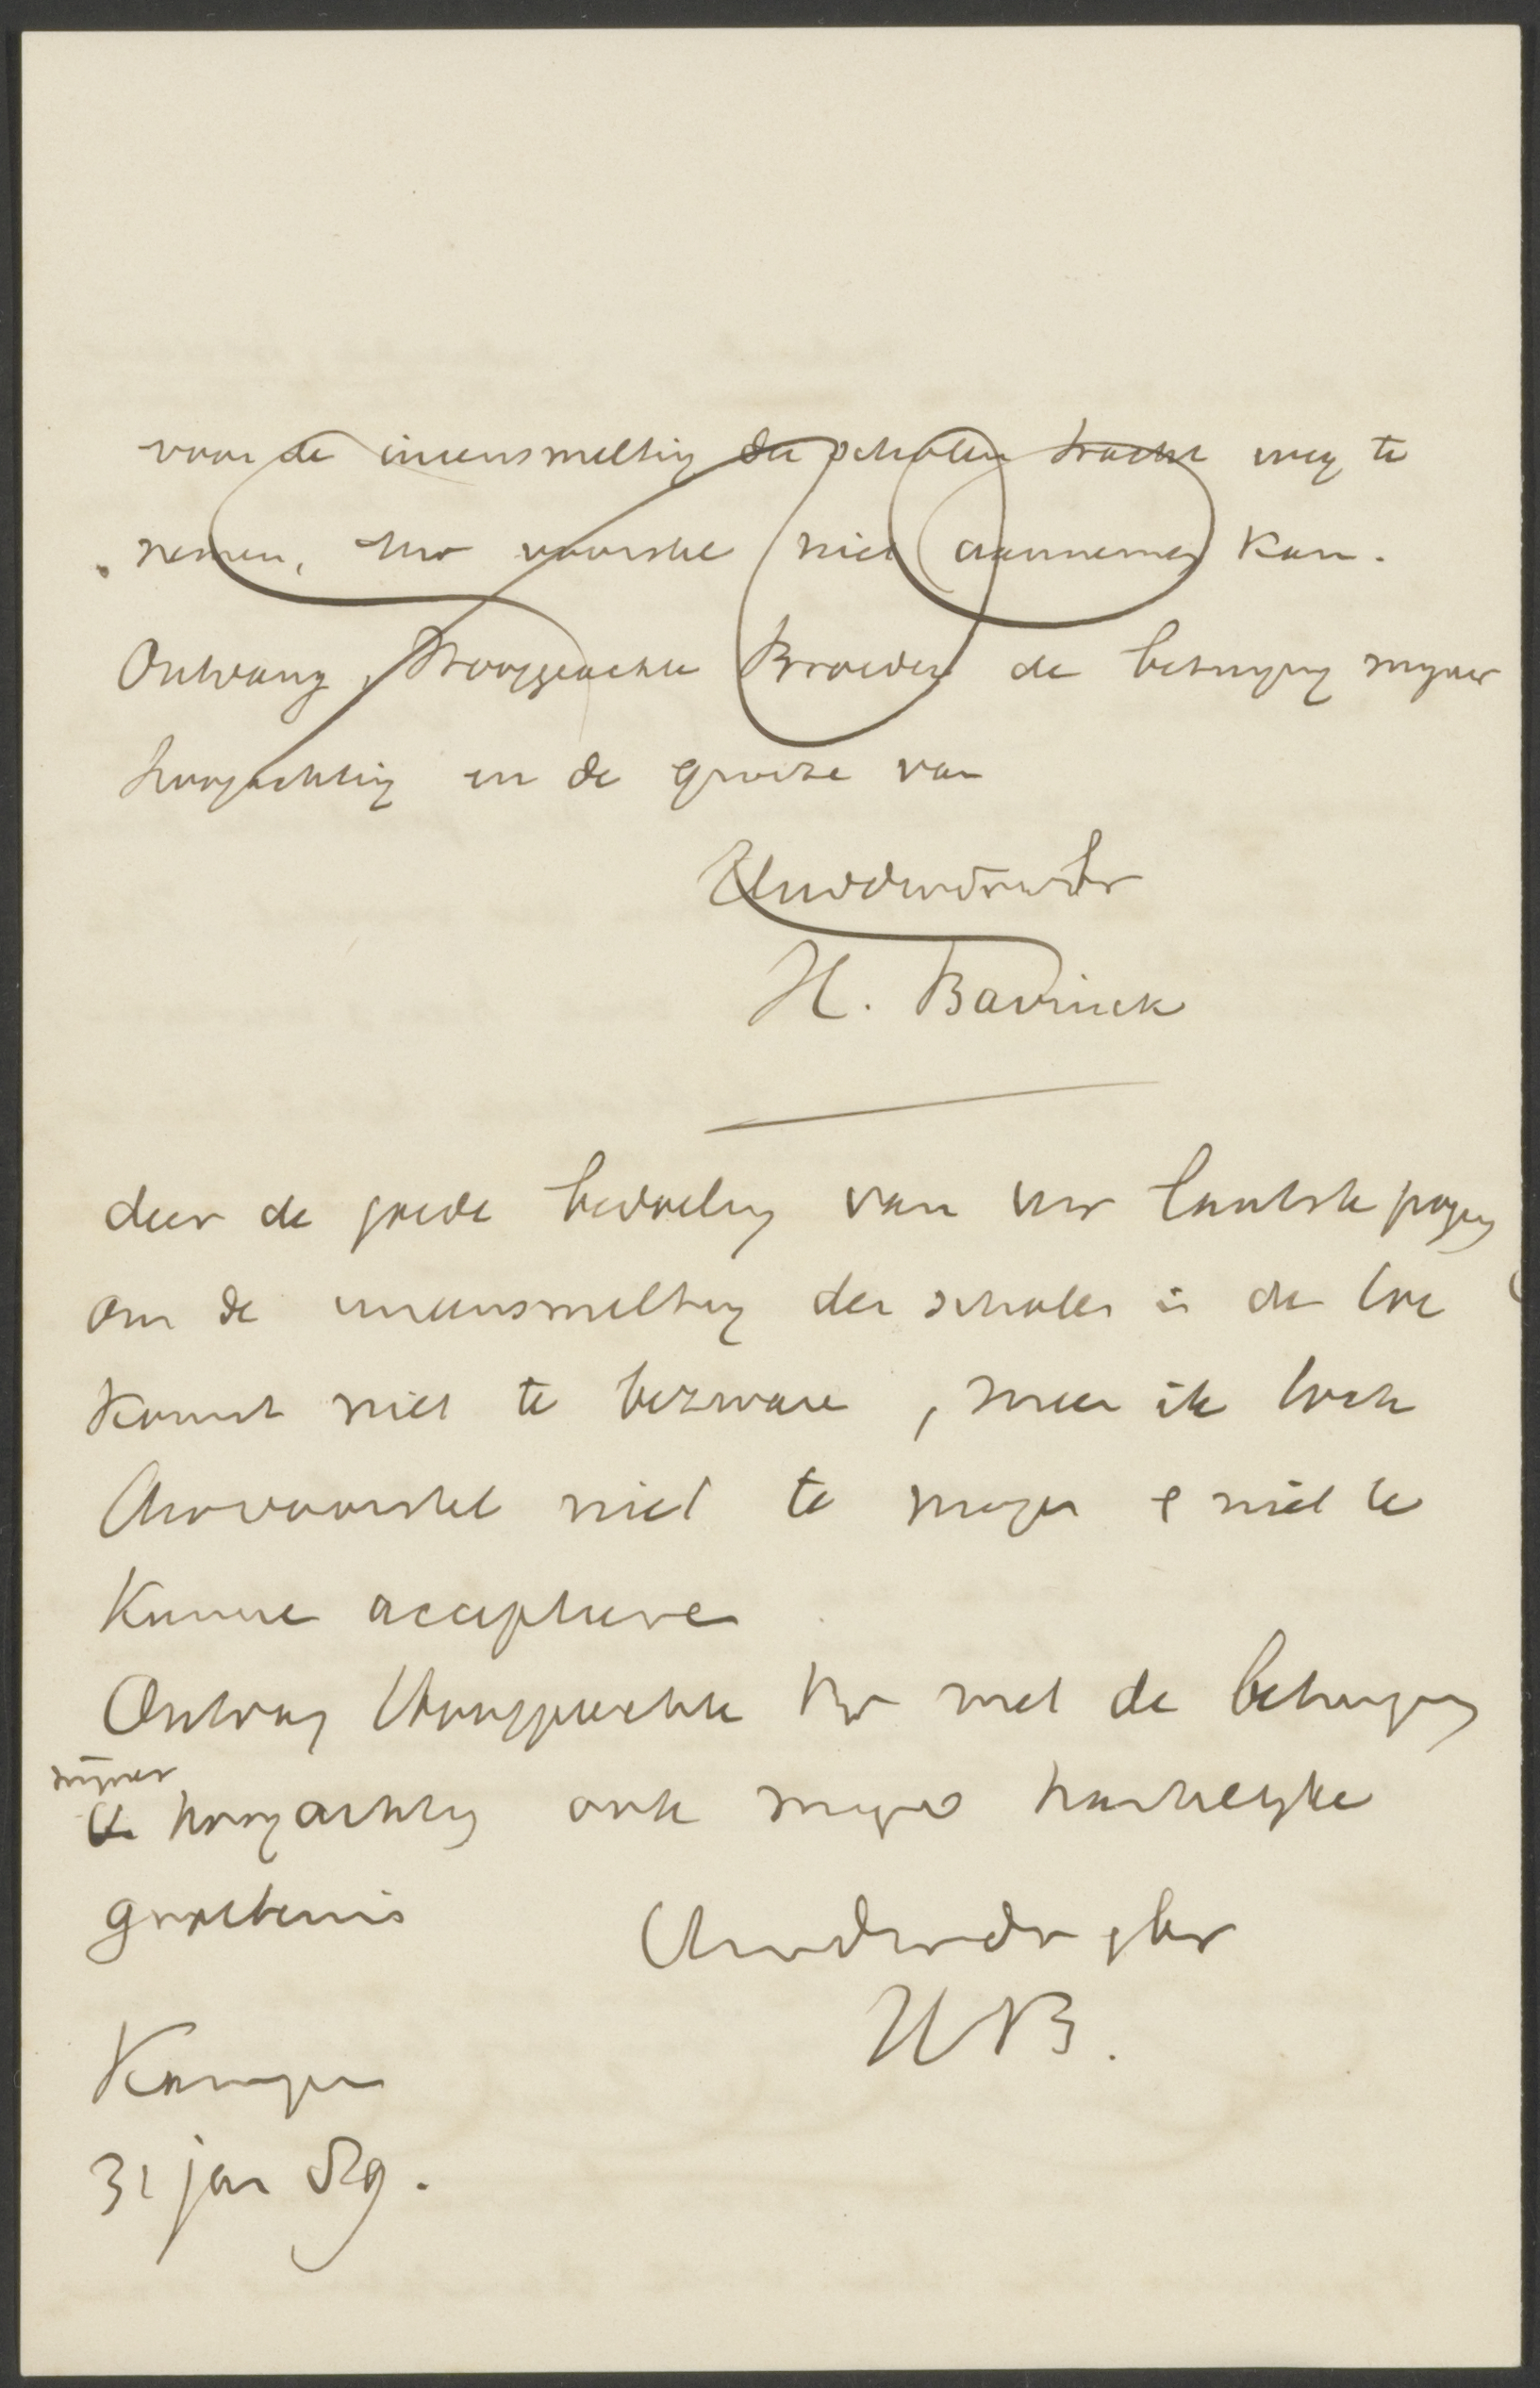 voor de ineensmelting der scholen tracht weg te
nemen, Uw voorstel niet aannemen kan.
Ontvang, Hooggeachte Broeder de betuiging mijner
hoogachting en de groete van
Uw dw dr en br
H. Bavinck
deer de goede bedoeling van uw laatste poging
om de ineensmelting der scholen in de toe
komst niet te bezware, maar ik
Uw voorstel niet te mogen & niet te
Kunne accepteere
Ontvang Hooggeachte Br met de betuiging
mijner
hoogachting ook mijne hartelijke
groetenis
Uw dw dr & br
HB.
Kampen
31 jan 89.